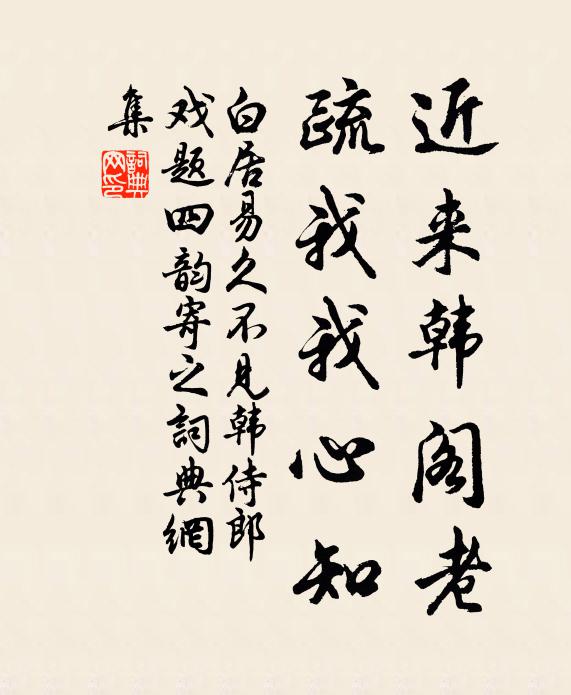 近来韩阁老
疏我我心知
白居易久不见韩侍郎
戏题四韵寄之詞典網
集
詞典
网印